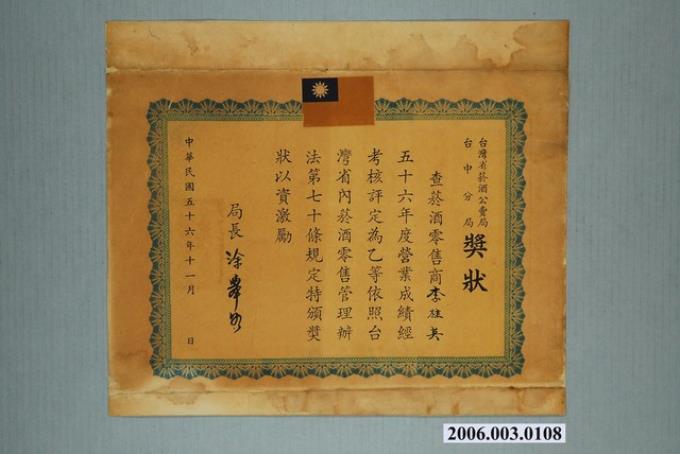 台灣省菸酒公賣局
台中分局
獎狀
查菸酒零售商李
五十六年度營業成績經
考核評定為乙等依照台
灣省內菸酒零售管理辦
法第七十條規定特頒獎
狀以資激勵
局長
中華民國五十六年十一月 日
2006.003.0108